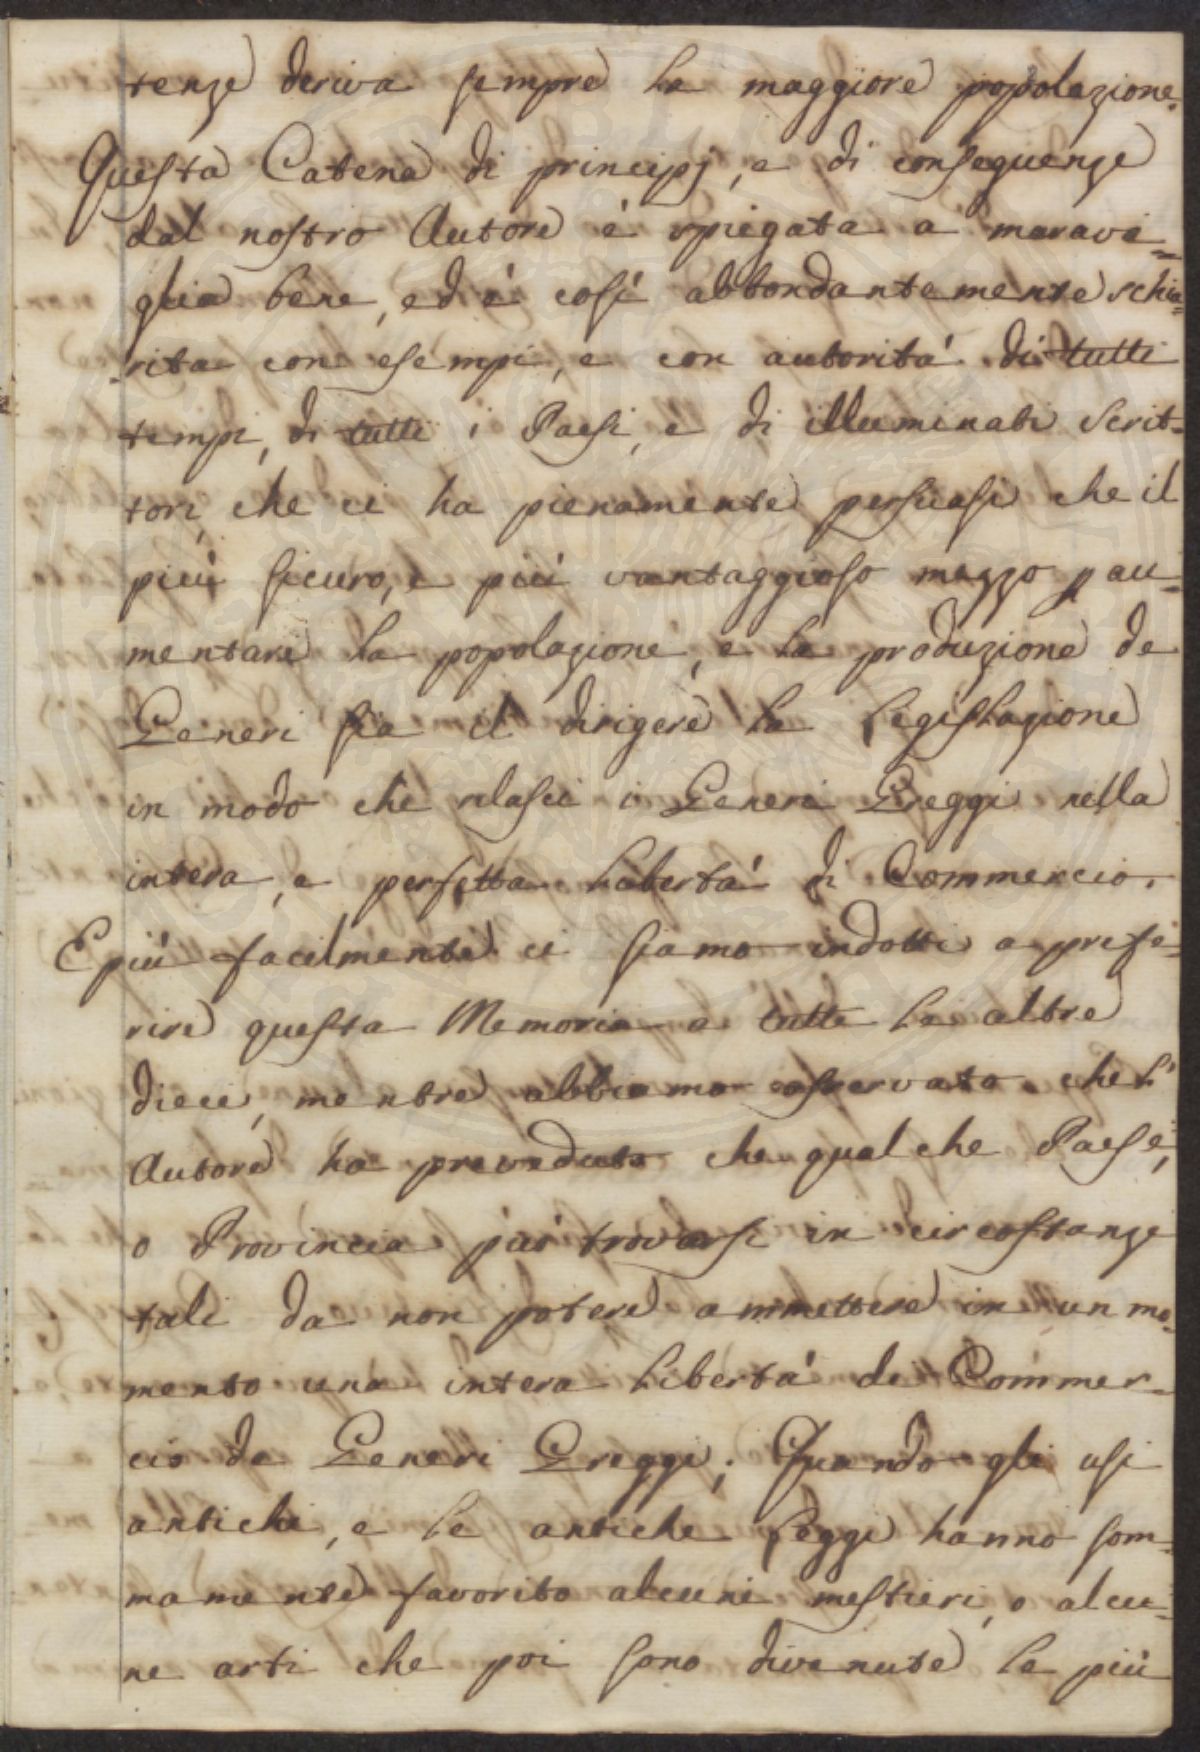 tenze deriva sempre la maggiore popolazione.
Questa Catena di principj, e di conseguenze
dal nostro Autore è spiegata a maravi=
glia bene, ed è così abbondantemente schia=
rita con esempi, e con autorità di tutti
tempi, di tutti i Paesi, e di illuminati Scrit=
tori, che ci ha pienamente persuasi che il
più sicuro, e più vantaggioso mezzo p au=
mentare la popolazione, e la produzione de
Generi sia il dirigere la Legislazione
in modo che rilasci i Generi Greggi nella
intera, e perfetta Libertà di Commercio.
E più facilmente ci siamo indotti a prefe=
rire questa Memoria a tutte le altre
dieci, mentre abbiamo osservato che l'
Autore ha preveduto che qualche Paese,
o Provincia può trovarsi in circostanze
tali da non potere ammettere in un mo=
mento una intera Libertà di Commer=
cio de Generi Greggi; Quando gli usi
antichi, e le antiche Leggi hanno som=
mamente favorito alcuni mestieri, o alcu=
ne arti che poi sono divenute le più